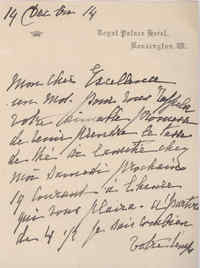 14 Dec bre 14
Royal Palace Hotel,
Kensington, W.
Mon cher Excellence
un mot pour vous rappeler
votre aimable promesse
de venir prendre la tasse
de thé à causette chez
moi Samedi prochain
19 Courant à l'heure
qui vous plaira. à partir
de 4 je sais combien
votre temps